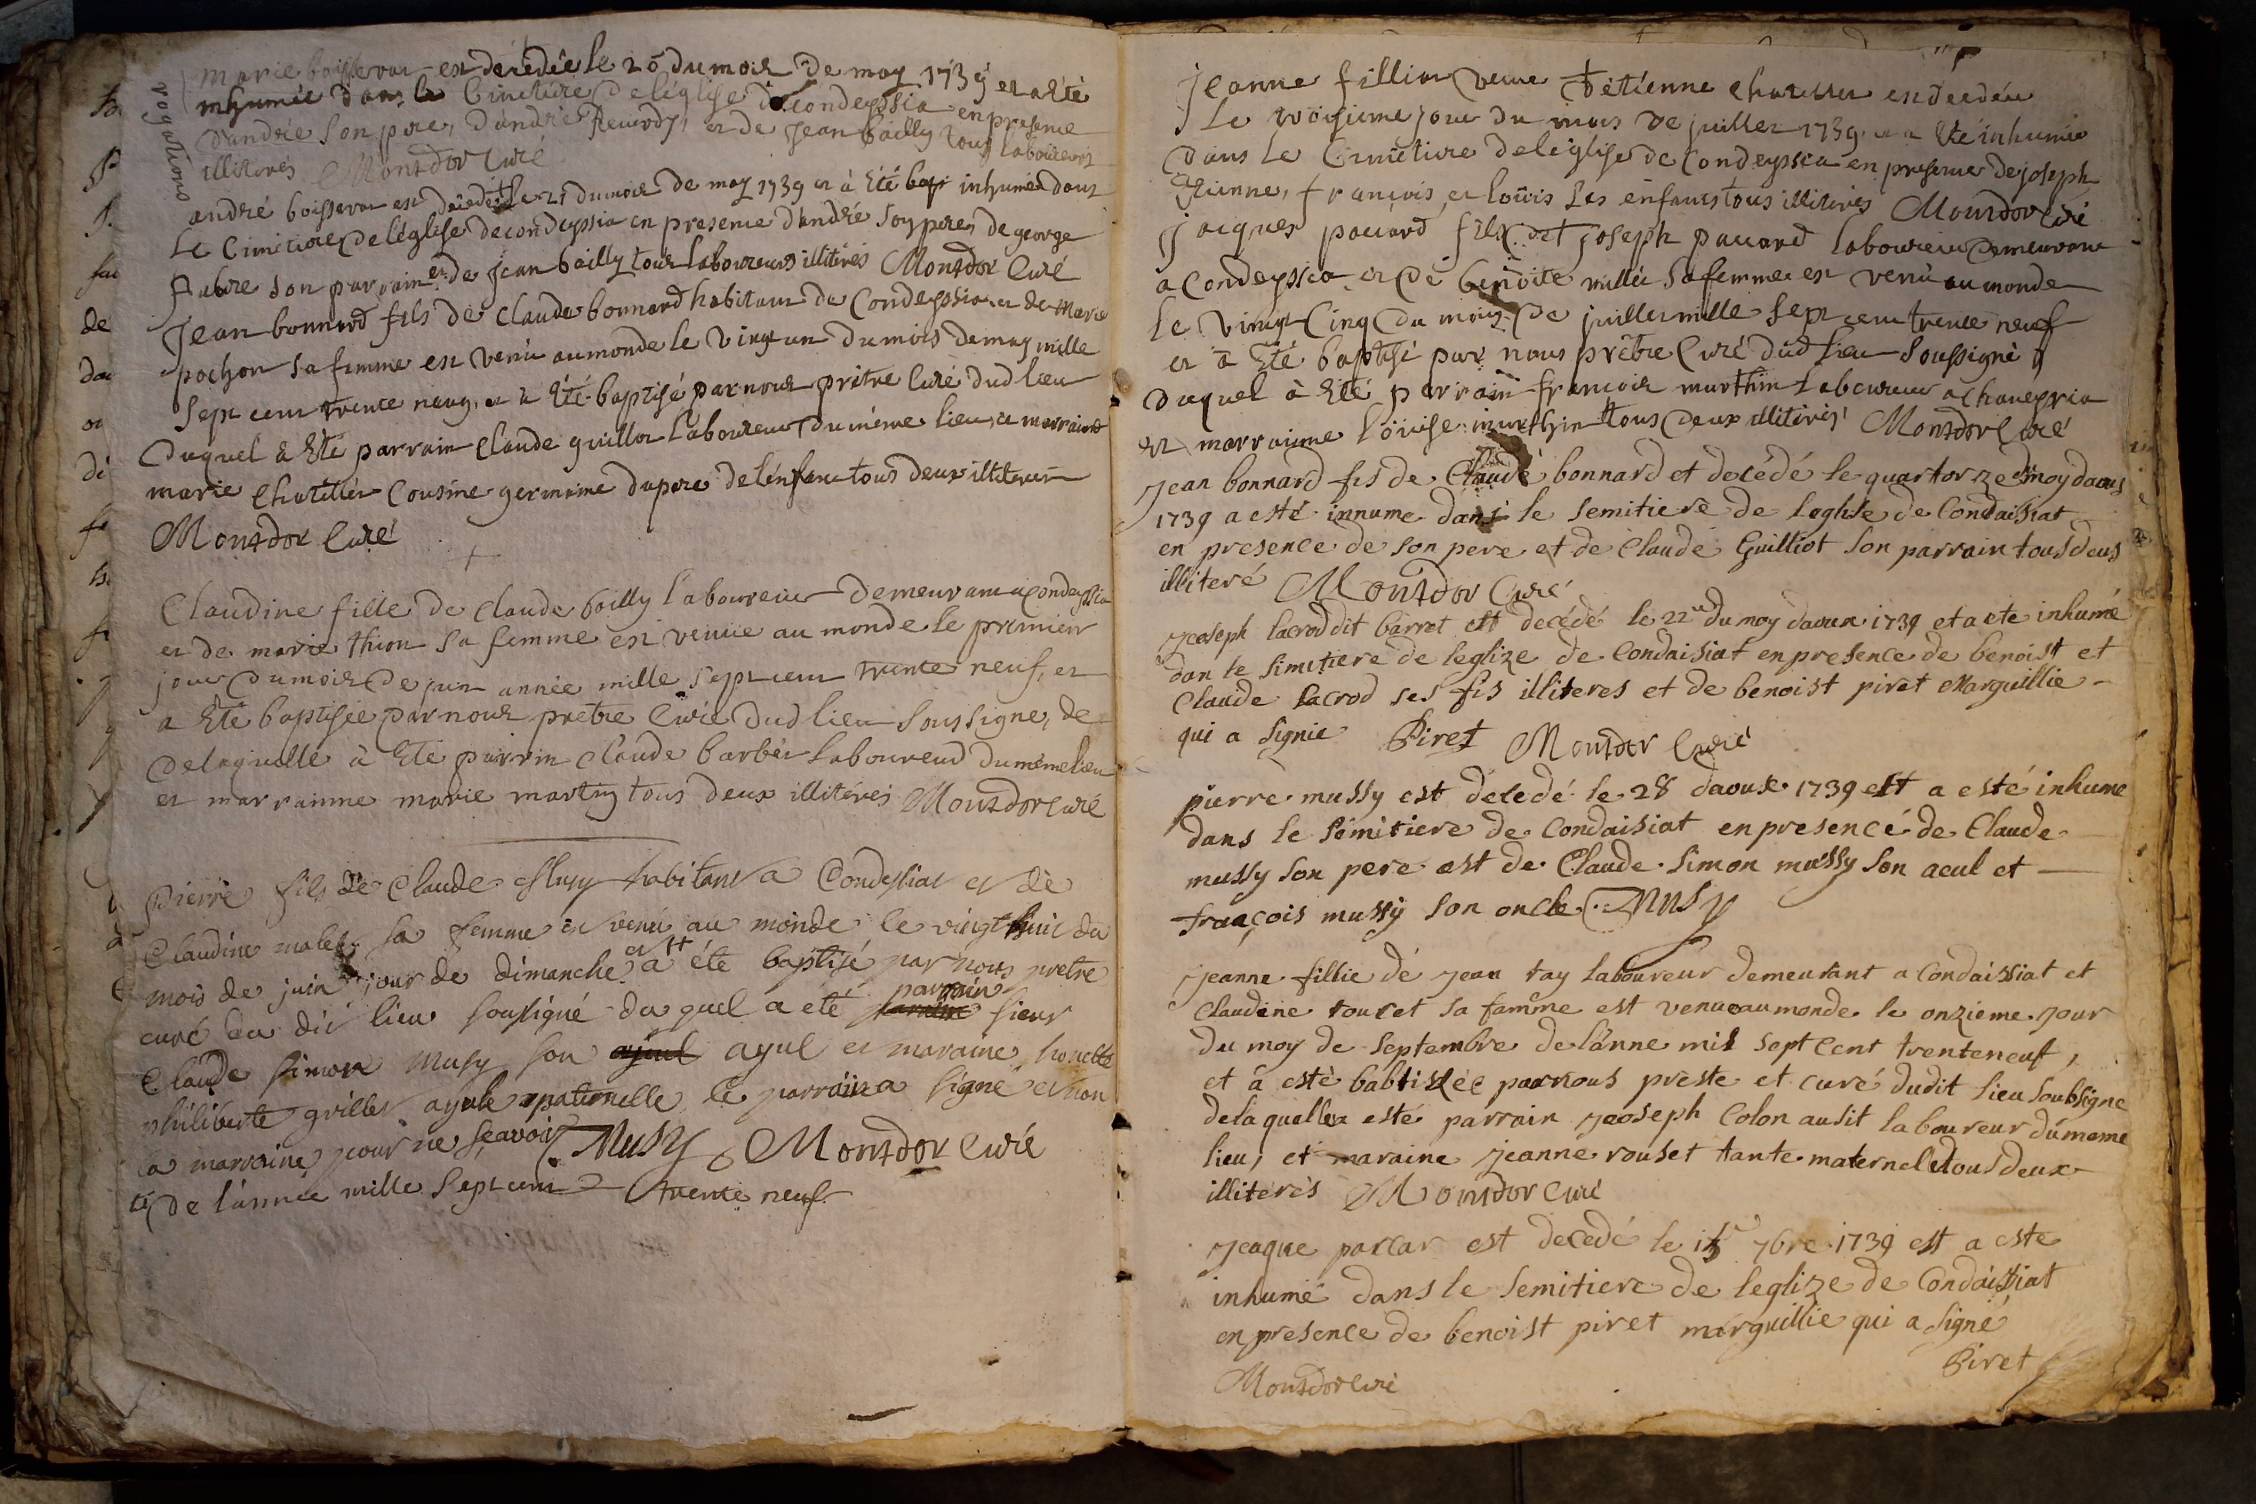 marie boisseran est decedée le 20 du mois de may 1739 et a été
inhumée dans le Cimetiere de l'église de condeyssia en presence
d'andrée son pere, d'andrée Revordy, et de jean bailly tous laboureurs
illiterés Montdor Curé
rogations
andré boisseran est decedé le 21 du mois de may 1739 et à Eté bap inhumé dans
Le Cimetiere de l'église de condeyssia en presence d'andré son pere, de george
fabre son parrain et de jean bailly tous laboureurs illiterés Montdor Curé
jean bonnard fils de claude bonnard habitant de Condeyssia et de marie
pochon sa femme est venu au monde le vingt un du mois de may mille
sept cent trente neuf, et à Eté baptisé par nous prêtre Curé dud lieu
duquel à Eté parrain claude guillot laboureur du même lieu, et marraine
marie chatillon Cousine germaine du pere de l'enfant tous deux illiterés
Montdor Curé
+
Claudine fille de claude bailly laboureur demeurant a condeyssia
et de marie thion sa femme est venuë au monde le premier
jour du mois de juin année mille sept cent trente neuf, et
a Eté baptisée par nous prêtre Curé dud lieu soussigné, de
delaquelle à Eté parrin claude barbier laboureur du même lieu
et marrainne marie martin tous deux illitérés Montdor curé
pierre fils de claude Musy habitant a Condessiat et de
Claudine malet sa femme est venu au monde le vingt huit du
mois de juin jour de dimanche et a été baptisé par nous pretre
curé du dit lieu sousigné du quel a été parrain sieur
Claude simon Musy son ayul ayul et maraine honette
philiberte grillet ayule paternelle le parrain a signé et non
la marraine pour ne sçavoir Musy Montdor Curé
de l'année mille sept cent trente neuf
jeanne fillion veuve d'etienne chatillon est decedée
Le troisieme jour du mois de juillet 1739 et a Eté inhumée
dans Le Cimetiere de l'église de Condeyssia en presence de joseph
Etienne, françois, et loüis ses enfants tous illiterés Montdor Curé
jacques paccard fils de joseph paccard laboureur demeurant
a Condeyssia et de benoite millié sa femme est venu au monde
le vingt Cinq du mois de juillet mille sept cent trente neuf
et à Eté baptisé par nous prêtre Curé dud lieu Soussigné
duquel à Eté parrain françois marthin laboureur a chaneyria
et marrainne loüise marthin tous deux illiterés Montdor Curé
jean bonnard fis de Claude bonnard et decédé le quartorze moy daous
1739 a esté innume dans le semitiere de leglise de Condaisiat
en presence de son pere et de Claude Guilliot son parrain tous deus
illiteré Montdor Curé
joseph lacrod dit barret est decédé le 22 du moy daoux 1739 et a ete inhumé
dan le simetiere de leglize de Condaisiat en presence de benoist et
Claude lacrod ses fis illiteres et de benoist piret Marguillie
qui a signie Piret Montdor Curé
pierre mussy est decedé le 28 daoust 1739 est a esté inhume
dans le semitiere de Condaisiat en presencé de Claude
mussy son pere est de Claude simon mussy son aeul et
françois mussy son oncle Musy
jeanne fillie de jean tay laboureur demeurant a Condaissiat et
Claudine rouset sa famme est venue au monde le onzieme jour
du moy de septembre de lanne mil sept cent trenteneuf,
et a esté babtisée par nous preste et curé dudit lieu soubsigne
delaquelle a esté parrain joseph Colon ausit laboureur du meme
lieu, et maraine jeanne rouset tante maternelle tous deux
illiterés Montdor Curé
jeaque paccar est decedé le 7bre 1739 est a este
inhumé dans le semitiere de leglize de Condaissiat
en presence de benoist piret marguillie qui a signé
Piret
Montdor Curé